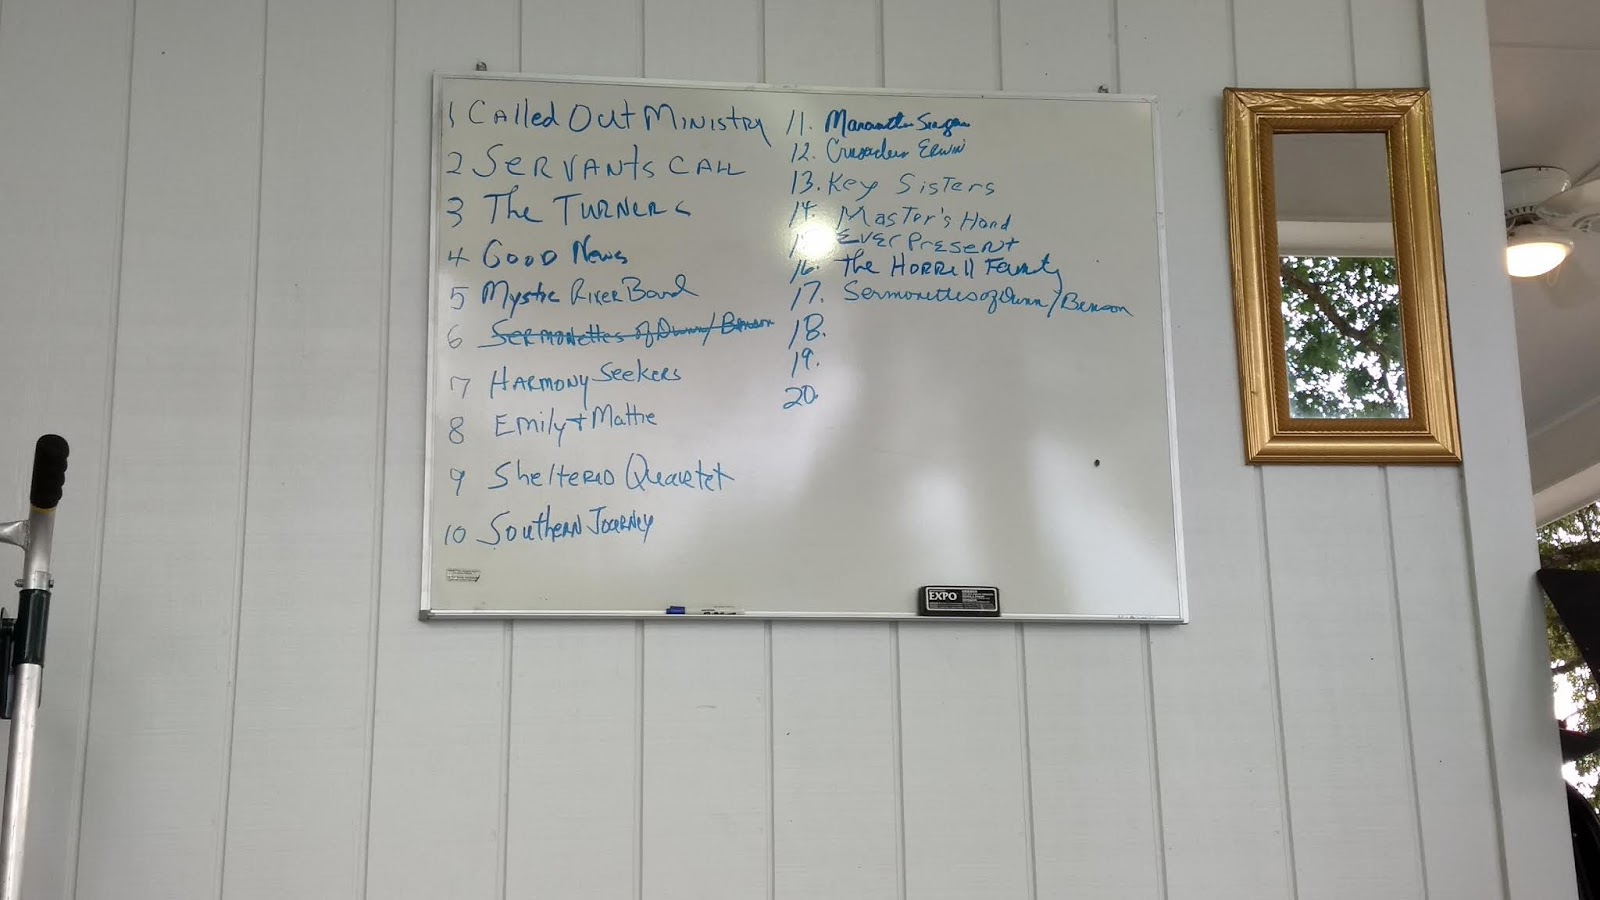 1 Called Out Ministry
2 Servants Call
3 The Turners
4 Good News
5 Mystic River Band
6 Sermonettes of Dunn/Benson
7 Harmony Seekers
8 Emily + Mattie
9 Sheltered Quartet
10 Southern Journey
11.
12. Crusaders Erwin
13. Key Sisters
14. Master's Hand
Ever Present
16. The Horrell Family
17. Sermonettes of Dunn/Benson
18.
19.
20.
EXPO